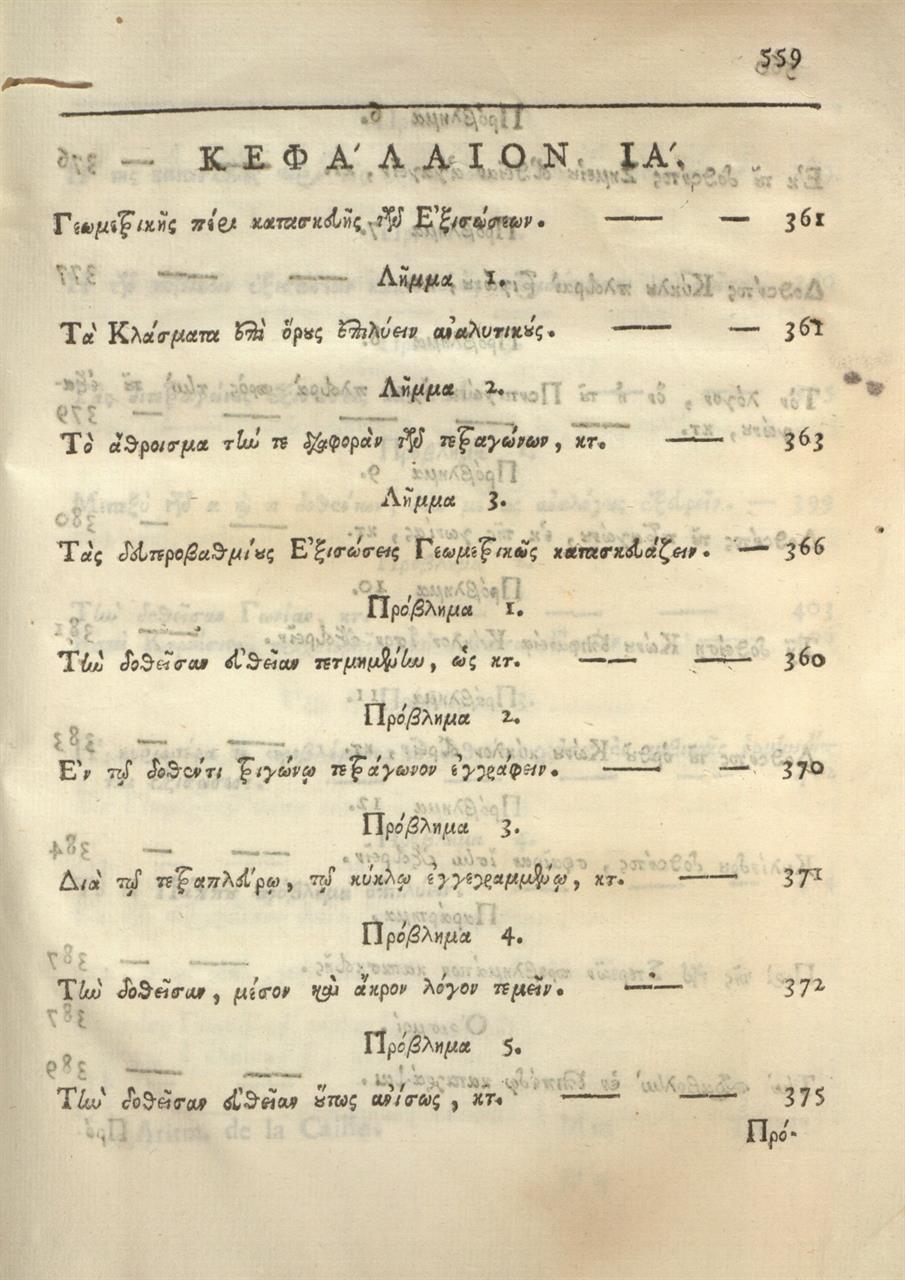 559
ΚΕΦΑ΄ΛΑΙΟΝ ΙΑ΄.
Γεωμετρικῆς πέρι κατασκευῆς τῶν Ἐξισώσεων. — — 361
Λῆμμα 1.
Τὰ Κλάσματα ἐπὶ ὅρους ἐπιλύειν ἀναλυτικούς. — — 361
Λῆμμα 2.
Τὸ ἄθροισμα τήν τε διαφορὰν τῶν τετραγώνων, κτ. — 363
Λῆμμα 3.
Τὰς δευτεροβαθμίους Ἐξισώσεις Γεωμετρικῶς κατασκευάζειν. — 366
Πρόβλημα 1.
Τὴν δοθεῖσαν εὐθεῖαν τετμημένην, ὡς κτ. — — 360
Πρόβλημα 2.
Ἐν τῷ δοθέντι τριγώνῳ τετράγωνον ἐγγράφειν. — — 370
Πρόβλημα 3.
Διὰ τῷ τετραπλεύρῳ, τῷ κύκλῳ ἐγγεγραμμένῳ, κτ. — 371
Πρόβλημα 4.
Τὴν δοθεῖσαν, μέσον καὶ ἄκρον λόγον τεμεῖν. — 372
Πρόβλημα 5.
Τὴν δοθεῖσαν εὐθεῖαν οὕπως ἀνίσως, κτ. — — 375
Πρό-